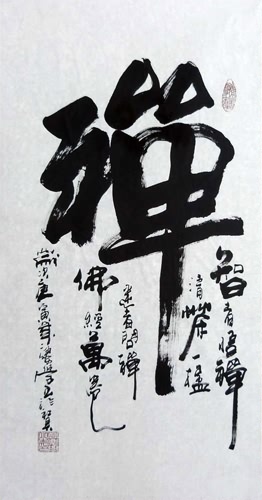 禪
智者悟禪
清茶一壺
迷者問禪
佛經萬卷
歲次庚寅年